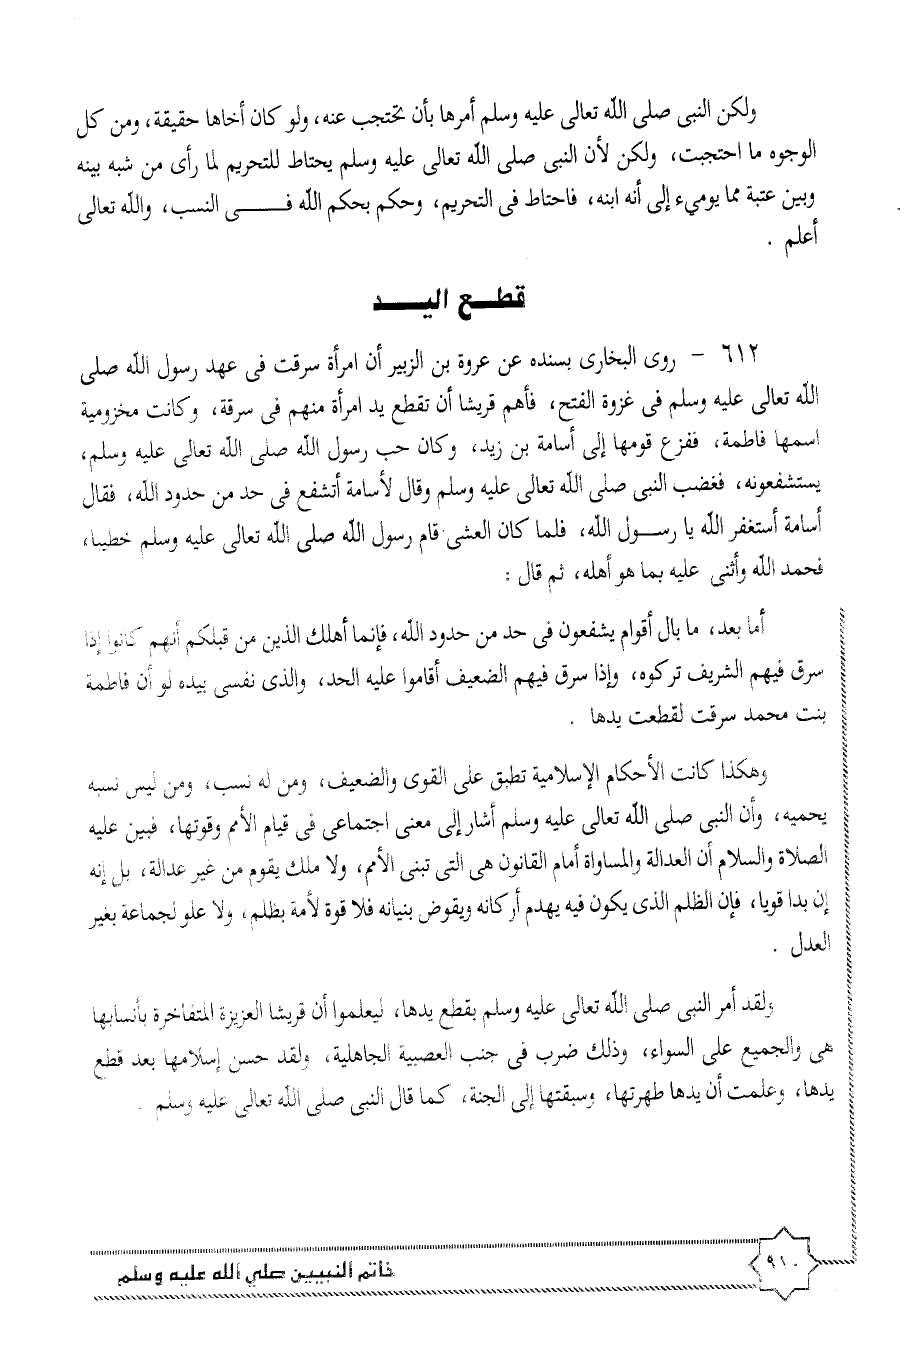 ولكن النبى صلى الله تعالى عليه وسلم أمرها بأن تحتجب عنه، ولو كان أخاها حقيقة، ومن كل
الوجوه ما احتجبت، ولكن لأن النبى صلى الله تعالى عليه وسلم يحتاط للتحريم لما رأى من شبه بينه
وبين عتبة مما يوميء إلى أنه ابنه، فاحتاط فى التحريم، وحكم بحكم الله فــــى النسب، والله تعالى
أعلم .
قطــع اليـــد
٦١٢ - روى البخارى بسنده عن عروة بن الزبير أن امرأة سرقت فى عهد رسول الله صلى
الله تعالى عليه وسلم فى غزوة الفتح، فأهم قريشا أن تقطع يد امرأة منهم فى سرقة، وكانت مخزومية
اسمها فاطمة، ففزع قومها إلى أسامة بن زيد، وكان حب رسول الله صلى الله تعالى عليه وسلم،
يستشفعونه، فغضب النبى صلى الله تعالى عليه وسلم وقال لأسامة أتشفع فى حد من حدود الله، فقال
أسامة أستغفر الله يا رســول الله، فلما كان العشى قام رسول الله صلى الله تعالى عليه وسلم خطيبا،
فحمد الله وأثنى عليه بما هو أهله، ثم قال :
أما بعد، ما بال أقوام يشفعون فى حد من حدود الله، فإنما أهلك الذين من قبلكم أنهم كانوا إذا
سرق فيهم الشريف تركوه، وإذا سرق فيهم الضعيف أقاموا عليه الحد، والذى نفسى بيده لو أن فاطمة
بنت محمد سرقت لقطعت يدها .
وهكذا كانت الأحكام الإسلامية تطبق على القوى والضعيف، ومن له نسب، ومن ليس نسبه
يحميه، وأن النبى صلى الله تعالى عليه وسلم أشار إلى معنى اجتماعى فى قيام الأمم وقوتها، فبين عليه
الصلاة والسلام أن العدالة والمساواة أمام القانون هى التى تبنى الأمم، ولا ملك يقوم من غير عدالة، بل إنه
إن بدا قويا، فإن الظلم الذى يكون فيه يهدم أركانه ويقوض بنيانه فلا قوة لأمة بظلم، ولا علو لجماعة بغير
العدل .
ولقد أمر النبى صلى الله تعالى عليه وسلم بقطع يدها، ليعلموا أن قريشا العزيزة المتفاخرة بأنسابها
هى والجميع على السواء، وذلك ضرب فى جنب العصبية الجاهلية، ولقد حسن إسلامها بعد قطع
يدها، وعلمت أن يدها طهرتها، وسبقتها إلى الجنة، كما قال النبى صلى الله تعالى عليه وسلم .
٩١٠
خاتم النبيين صلي الله عليه وسلم